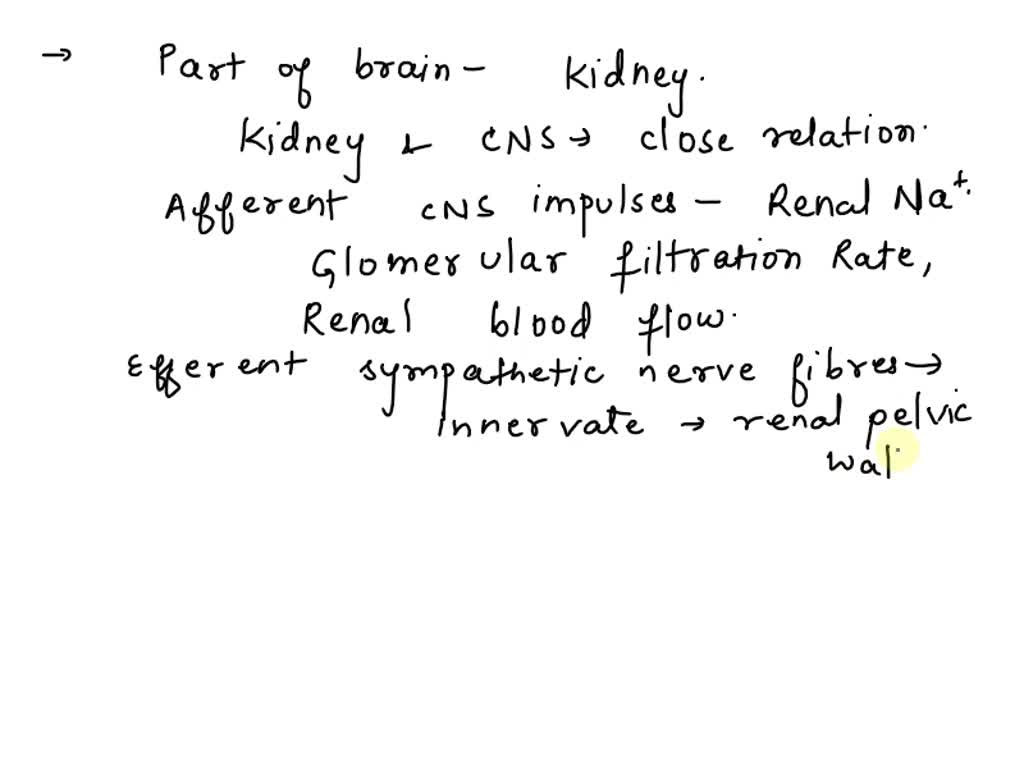 → Part of brain - Kidney.
Kidney & CNS → close relation.
Afferent CNS impulses - Renal Na+.
Glomerular filtration Rate,
Renal blood flow.
Efferent sympathetic nerve fibres →
innervate → renal pelvic
wal